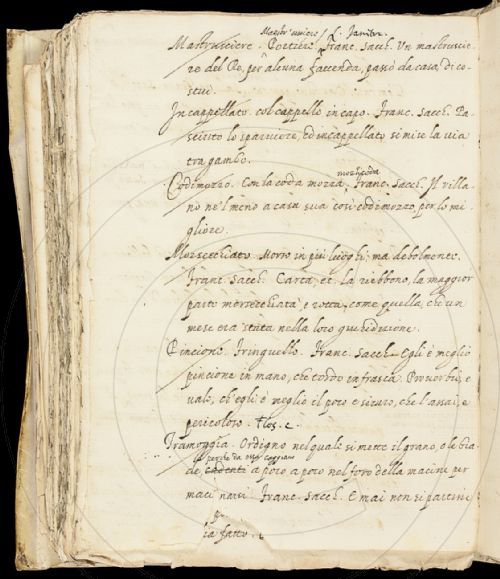 Mastr'usciere / L. Janitor.
Mastrusciere. Portiere. Franc. Sacch. Un mastruscie-
re del Re, per alcuna faccenda, passò da casa di co-
stui.
Incappellato. col cappello in capo. Franc. Sacch. Pa-
sciuto lo sparviere, ed incappellato si mise la via
tra gambe.
mozzicoda
Codimozzo. Con la coda mozza. Franc. Sacch. Il villa-
no ne'l menò a casa sua così codimozzo, per lo mi
gliore.
Morsecchiato. Morso in più luoghi, ma debolmente.
Franc. Sacch. Carta, et la riebbono, la maggior
parte morsecchiata e rotta, come quella, che un
mese era stata nella loro
Pincione. Fringuello. Franc. Sacch. Egli è meglio
pincione in mano, che tordo in frasca. Proverbio, e
vale, ch'egli è meglio il poco e sicuro, che l'assai, e
pericoloso. Flos. c.
Tramoggia. Ordigno nel quale si mette il grano, o le bia-
perche da essa caggiano
de, a poco a poco nel foro della macine per
macinarsi. Franc. Sacch. E mai non si partirie
fatto.